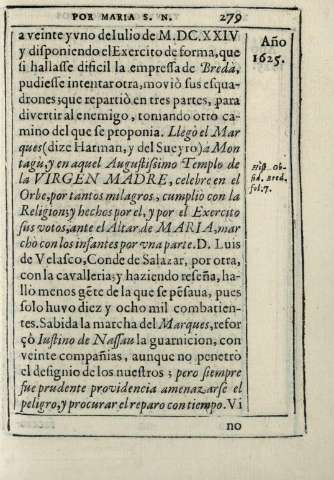 POR MARIA S. N. 279
a veinte y vno del Iulio de M.DC.XXIV
y disponiendo el Exercito de forma, que
si hallasse dificil la empressa de Bredà,
pudiesse intentar otra, movió sus esqua-
drones; que repartiò en tres partes, para
divertir al enemigo, tomando otro ca-
mino del que se proponia. Llegò el Mar
ques (dize Harman, y del Sueyro) a Mon
tagù, y en aquel Augustissimo Templo de
la VIRGEN MADRE, celebre en el
Orbe, por tantos milagros, cumpliò con la
Religion; y hechos por el, y por el Exercito
sus votos, ante el Altar de MARIA, mar
chò con los infantes por vna parte. D. Luis
de Velasco, Conde de Salazar, por otra,
con la cavalleria; y haziendo reseña, ha-
llò menos gẽte de la que se pẽsaua, pues
solo huvo diez y ocho mil combatien-
tes. Sabida la marcha del Marques, refor
çò Iustino de Nassau la guarnicion, con
veinte compañias, aunque no penetrò
el designio de los nuestros; pero siempre
fue prudente providencia amenazarse el
peligro, y procurar el reparo con tiempo. Vi
no
Año
1625.
Hist. Ob-
sid. Bred.
fol. 7.